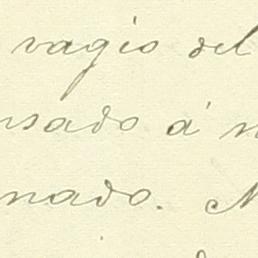 vagio del
nsado á n
nado. N